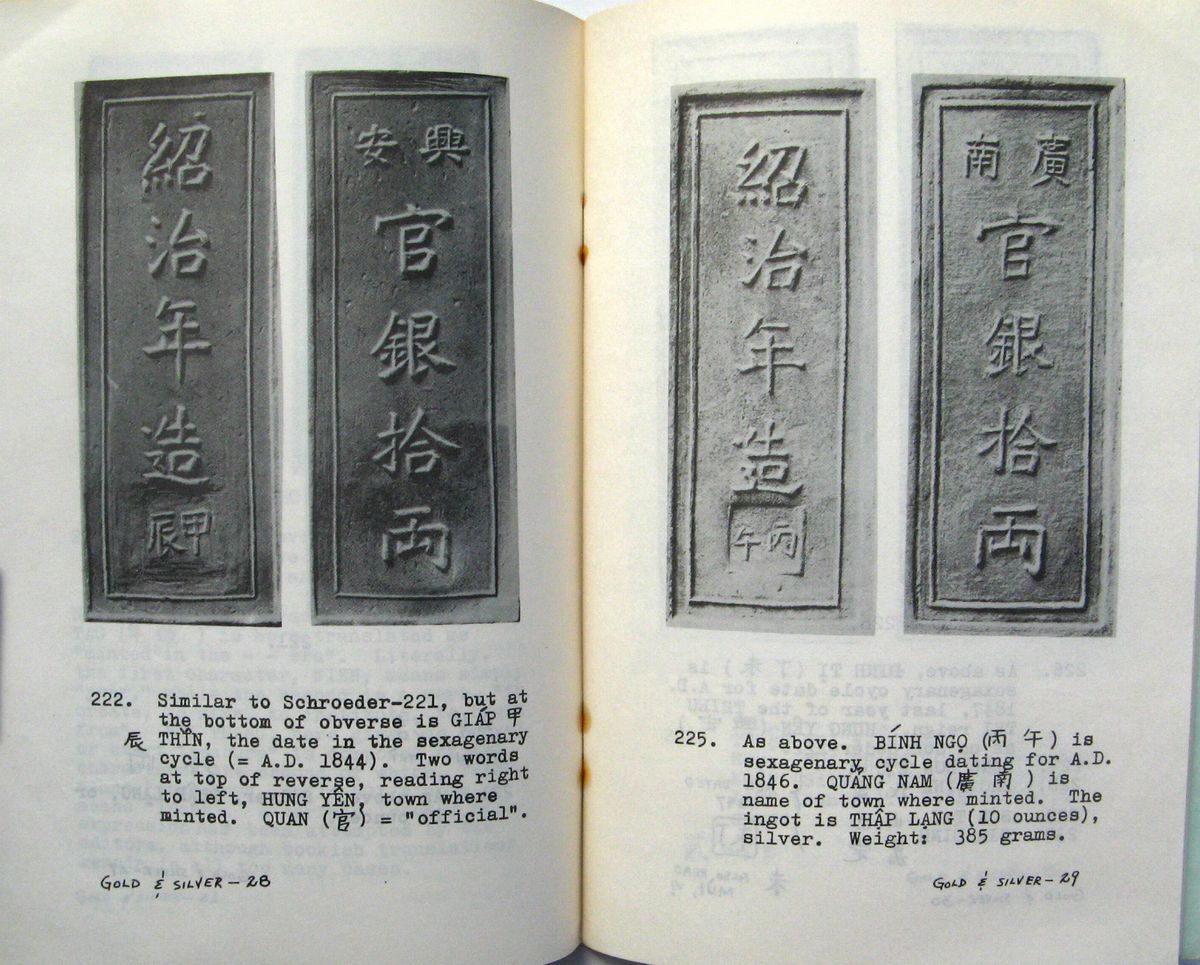 紹治年造
甲辰
興安
官銀拾両
紹治年造
丙午
廣南
官銀拾両
222. Similar to Schroeder-221, but at
the bottom of obverse is GIÁP 甲
辰 THÌN, the date in the sexagenary
cycle (= A.D. 1844). Two words
at top of reverse, reading right
to left, HUNG YÊN, town where
minted. QUAN (官) = "official".
GOLD & SILVER-28
225. As above. BÍNH NGỌ (丙午) is
sexagenary cycle dating for A.D.
1846. QUẢNG NAM (廣南) is
name of town where minted. The
ingot is THẬP LẠNG (10 ounces),
silver. Weight: 385 grams.
GOLD & SILVER-29